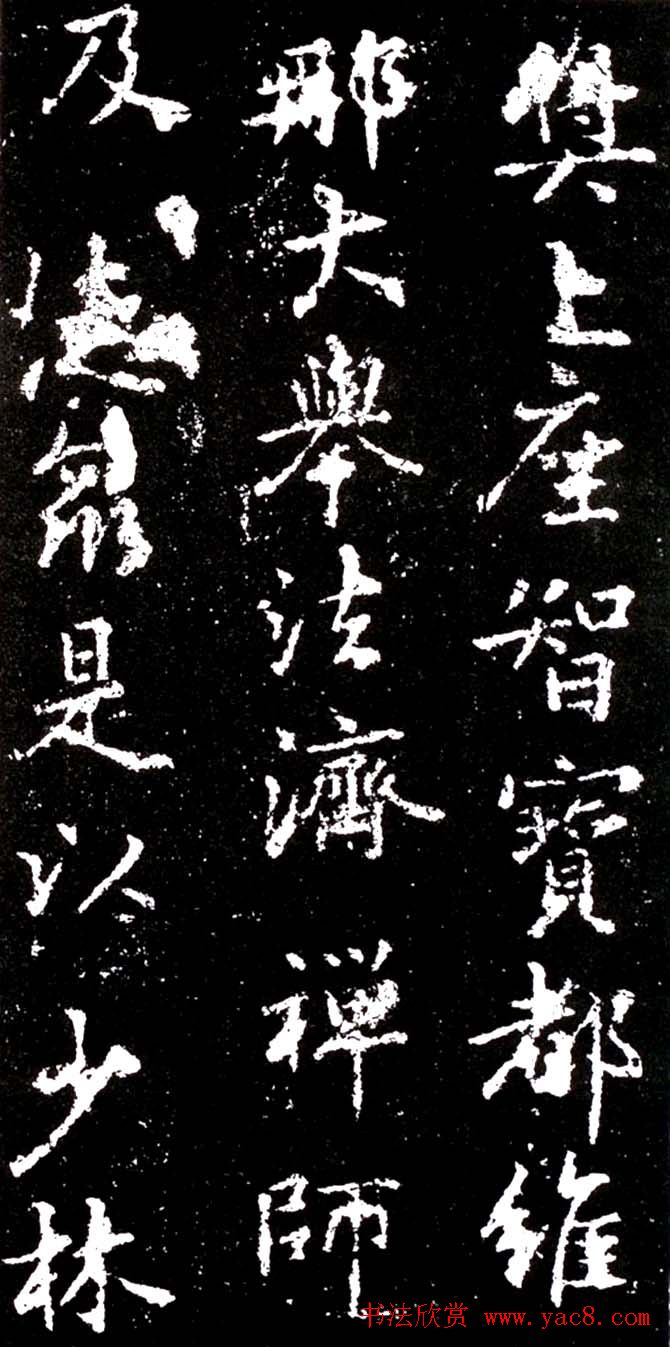 奬上座智寶都維
那大舉法濟禪師
及是以少林
书法欣赏 www.yac8.com